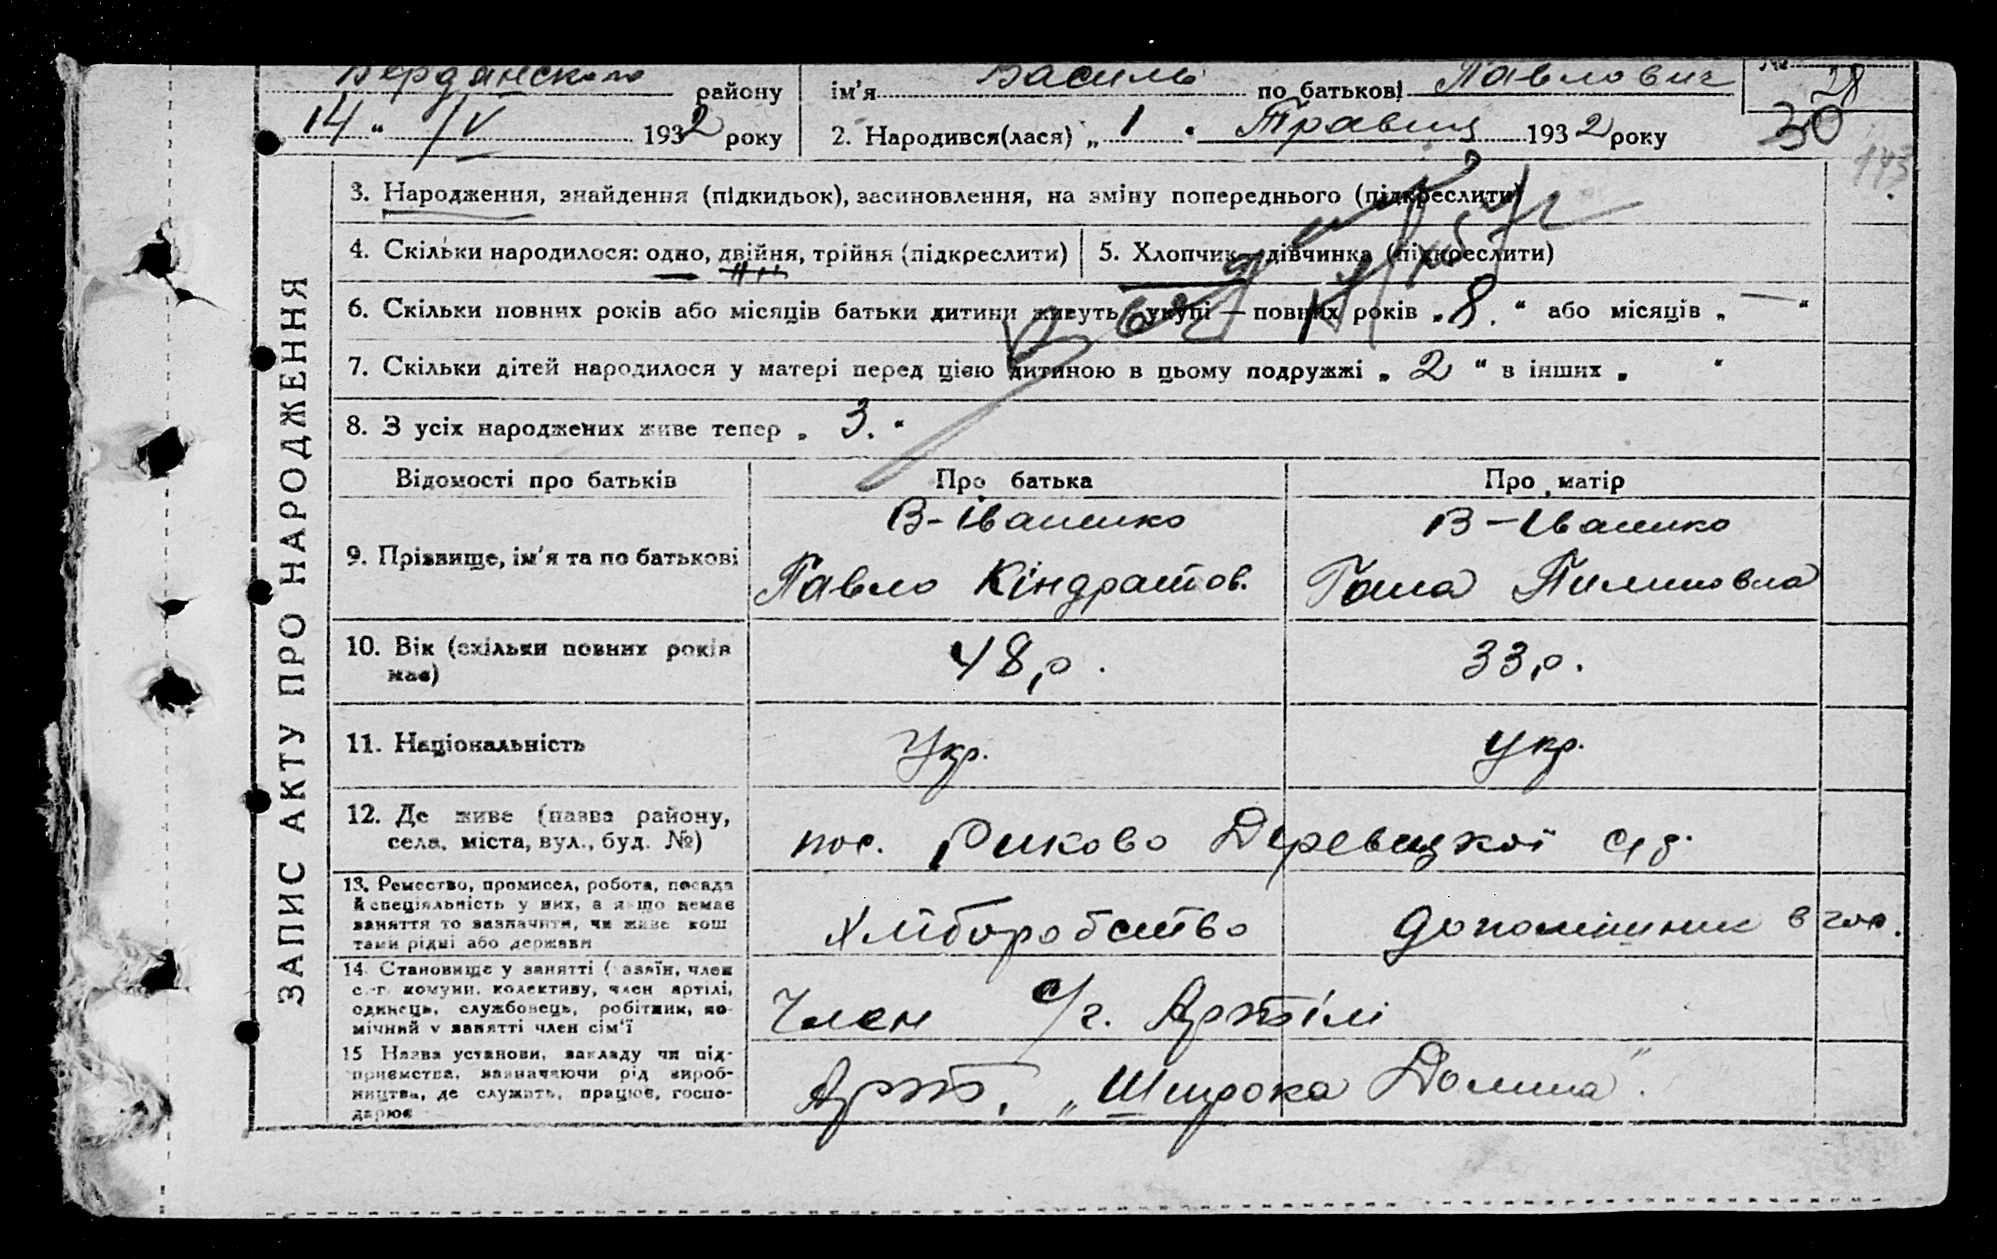 Бердянського району
ім'я Василь по батькові Павлович
№ 28
14 " IV 1932 року
2. Народився(лася) „ 1 " Травня 1932 року
30
143
3. Народження, знайдення (підкидьок), засиновлення, на зміну попереднього (підкреслити)
4. Скільки народилося: одно, двійня, трійня (підкреслити)
5. Хлопчик—дівчинка (підкреслити)
6. Скільки повних років або місяців батьки дитини живуть вкупі — повних років „ 8. “ або місяців „ — “
7. Скільки дітей народилося у матері перед цією дитиною в цьому подружжі „ 2 “ в інших „ “
8. З усіх народжених живе тепер „ 3. “
ЗАПИС АКТУ ПРО НАРОДЖЕННЯ
Відомості про батьків
Про батька
Про матір
9. Прізвище, ім'я та по батькові
В-Іваненко
Павло Кіндратов.
В-Іваненко
Ганна Пилиповна
10. Вік (скільки повних років має)
48 р.
33 р.
11. Національність
Укр.
Укр.
12. Де живе (назва району,
села, міста, вул., буд. №)
пос. Риково Деревецкої с/р.
13. Ремество, промисел, робота, посада
й спеціяльність у них, а якщо немає
заняття то зазначити, чи живе кош
тами рідні або держави
Хліборобство
допомішник в гос.
14. Становище у занятті (хазяїн, член
с.-г. комуни, колективу, член артілі,
одинець, службовець, робітник, по-
мічний у занятті член сім'ї
Член с/г. Артілі
15 Назва установи, закладу чи під-
приємства, зазначаючи рід вироб-
ництва, де служить, працює, госпо-
дарює
Арт. „Широка Долина".